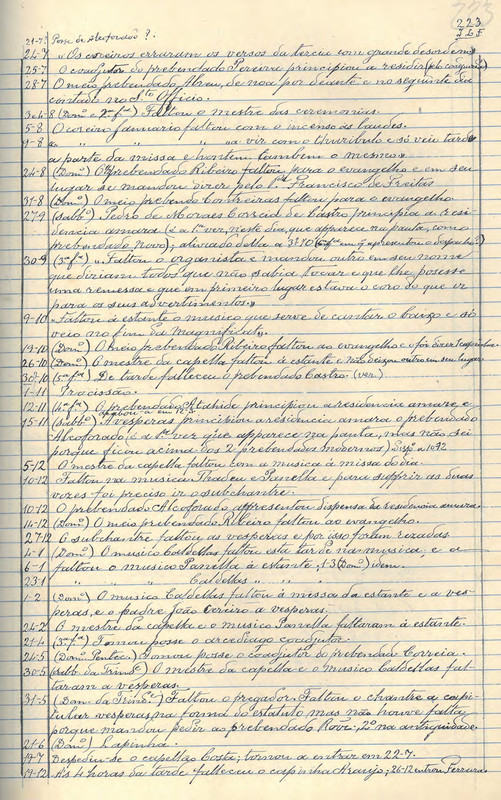 223
21-7 Posse de Alcoforado?
24-7 "Os coreiros erraram os versos da tercia com grande desordem"
25-7 O coadjutor do prebendado Pereira principiou a residir
28-7 O meio prebendado Abreu, de noa por deante e no seguinte dia
contado no Sto Officio.
3 e 4-8 (Domo e 2ª fª) Faltou o mestre das ceremonias.
5-8 O coreiro Januario faltou com o incenso ás laudes.
9-8 " " " " a vir com o thuribulo e só veio tarde
a parte da missa e hontem tambem o mesmo"
24-8 (Domo) O prebendado Ribeiro faltou para o evangelho e em seu
lugar se mandou dizer pelo Francisco de Freitas
31-8 (Domo) O meio prebendado faltou para o evangelho
27-9 (sabbo) Pedro de Moraes Correia de Castro principia a resi-
dencia amara (é a 1ª vez, neste dia, que apparece na pauta, como
prebendado novo); aliviado della a 3-10
30-9 (3ª fª) "Faltou o organista e mandou outro em seu nome
que diziam todos que não sabia tocar e que lhe posesse
uma remessa e que em primeiro lugar estava o coro do que vir
para os seus advertimentos."
9-10 "Faltou á estante o musico que serve de cantar o baixo e só
veio no fim da Magnificat"
19-10 (Domo) O meio prebendado Ribeiro faltou ao evangelho e foi dizer
26-10 (Domo) O mestre da capella faltou á estante e não deixou outro em seu lugar
30-10 (5ª fª) De tarde falleceu o prebendado Castro. (ver)
1-11 Procissão.
12-11 (4ª fª) O prebendado Atahide principiou a residencia amara e
15-11 (sabbo) A vesperas principiou a residencia amara o prebendado
Alcoforado (é a 1ª vez que apparece na pauta, mas não sei
porque ficou acima dos 2 prebendados modernos)
5-12 O mestre da capella faltou com a musica á missa do dia
10-12 Faltou na musica e Panella e para supprir as duas
vozes foi preciso ir o subchantre.
10-12 O prebendado Alcoforado appresentou dispensa da residencia amara.
14-12 (Domo) O meio prebendado Ribeiro faltou ao evangelho.
27-12 O subchantre faltou as vesperas e por isso foram rezadas
4-1 (Domo) O musico Caldellas faltou esta tarde na musica, e a
6-1 faltou o musico Panella á estante; 13 (Domo) idem.
23-1 " " " Caldellas " "
1-2 (Domo) O musico Caldellas faltou á missa da estante e a ves-
peras, e o padre João Coreiro a vesperas.
24-2 O mestre da capella e o musico Panella faltaram á estante.
21-4 (3ª fª) Tomou posse o arcediago coadjutor.
24-5 (Domo Pentec.) Tomou posse o coadjutor do prebendado Correia.
30-5 (sabb. da Trinde) O mestre da capella e o musico Caldellas fal-
taram a vesperas.
31-5 (Dom. da Trinde) Faltou o pregador. Faltou o chantre a capi-
tular vesperas na forma do estatuto mas não houve falta,
porque mandou pedir ao prebendado Rovi. 2º na antiguidade.
21-6 (Domo) Capinha.
19-7 Despediu-se o capellão Costa; tornou a entrar em 22-7.
19-12 Ás 4 horas da tarde falleceu o caspinha Araujo; 26-12 entrou Ferreira